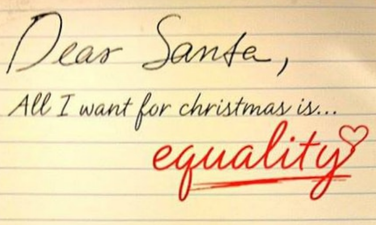 Dear Santa,
All I want for christmas is...
equality